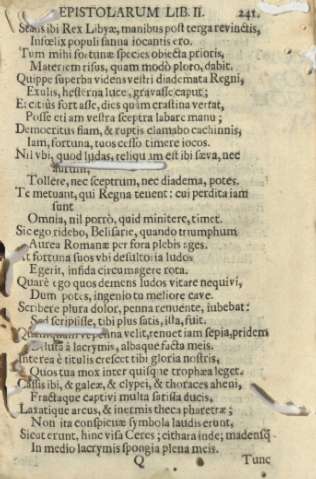 EPISTOLARUM LIB. II. 241.
ibi Rex Libyæ, manibus post terga revinctis,
Infœlix populi sanna iocantis ero.
Tum mihi fortunæ species obiecta prioris,
Materiem risus, quam modò ploro, dabit.
Quippe superba videns vestri diademata Regni,
Exulis, hesterna luce, gravasse caput;
Et citiùs fortasse, dies quàm crastina vertat,
Posse etiam vestra sceptra labare manu;
Democritus fiam, & ruptis clamabo cachinnis,
Iam, fortuna, tuos cesso timere iocos.
Nil vbi, quod ludas, reliquum est ibi sæva, nec
aurum,
Tollere, nec sceptrum, nec diadema, potes.
Te metuant, qui Regna tenent: cui perdita iam
sunt
Omnia, nil porrò, quid minitere, timet.
Sic ego ridebo, Belisarie, quando triumphum
Aurea Romanæ per fora plebis ages.
fortuna suos vbi desultoria ludos
Egerit, infida circumagere rota.
Quarè ego quos demens ludos vitare nequivi,
Dum potes, ingenio tu meliore cave.
Scribere plura dolor, penna renuente, iubebat:
Sed scripsisse, tibi plus satis, ista, fuit.
penna velit, renuet iam sepia, pridem
à lacrymis, albaque facta meis.
Interea è titulis crescet tibi gloria nostris,
Quos tua mox inter quisque trophæa leget.
Cassis ibi, & galeæ, & clypei, & thoraces aheni,
Fractaque captivi multa sarissa ducis,
Laxatique arcus, & inermis theca pharetræ;
Non ita conspicuæ symbola laudis erunt,
Sicut erunt, hinc visa Ceres; cithara inde; madensq́
In medio lacrymis spongia plena meis.
Q Tunc